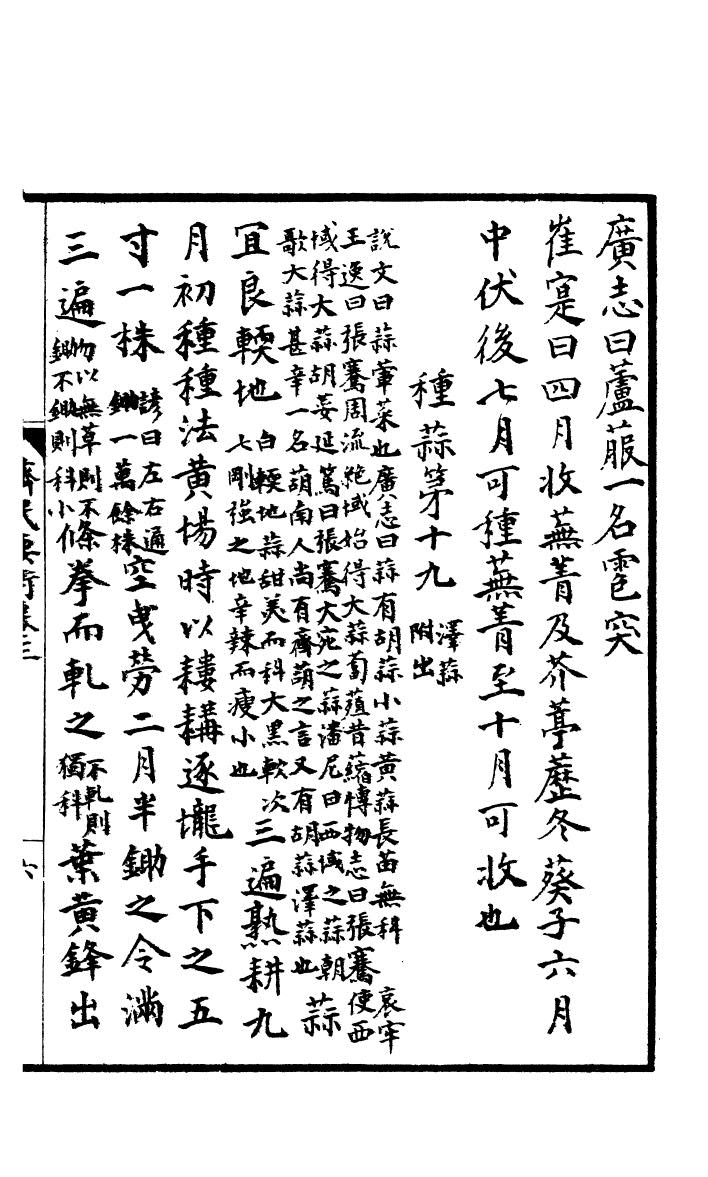 廣志曰蘆菔一名雹突
崔寔曰四月收蕪菁及芥葶藶冬葵子六月
中伏後七月可種蕪菁至十月可收也
種蒜第十九澤蒜附出
說文曰蒜葷菜也廣志曰蒜有胡蒜小蒜黃蒜長苗無科哀牢
王逸曰張騫周流絶域始得大蒜萄蒩昔蓿愽物志曰張騫使西
域得大蒜胡荽延篤曰張騫大宛之蒜潘尼曰西域之蒜朝
歌大蒜甚辛一名葫南人尚有齊葫之言又有胡蒜澤蒜也蒜
宜良輭地白輭地蒜甜美而科大黑軟次七剛強之地辛辣而瘦小也三遍熟耕九
月初種種法黃塲時以耬耩逐壠手下之五
寸一株諺曰左右通鋤一萬餘株空曳勞二月半鋤之令滿
三遍勿以無草則不鋤不鋤則科小條拳而軋之不軋則獨科葉黃鋒出
齊民要術卷三
六